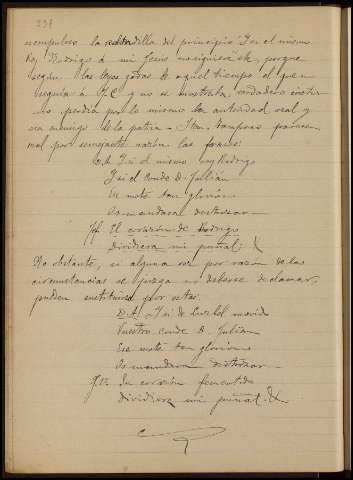 238
la redondilla del principio Si el mismo
Rey Rodrigo á mi Jesus no siguiera &, porque
segun las leyes godas de aquel tiempo el que no
seguia á J.C. y no se mostraba verdadero cristia-
no perdia por lo mismo la autoridad real y
era enemigo de la patria. Item tampoco
mal por semejante razon las frases:
Si el mismo rey Rodrigo
Si el conde D. Julián
Ese mote tan glorioso
Os mandase destrozar
El corazón de Rodrigo
Dividiera mi puñal; &
No obstante, si alguna vez por razon de las
circunstancias se juzga no deberse declamar,
pueden sustituirse por estas:
D.A. Si de Luzbel movido
Vuestro conde D. Julián
Ese mote tan glorioso
Os mandara destrozar
Su corazón fementido
Dividiera mi puñal. &